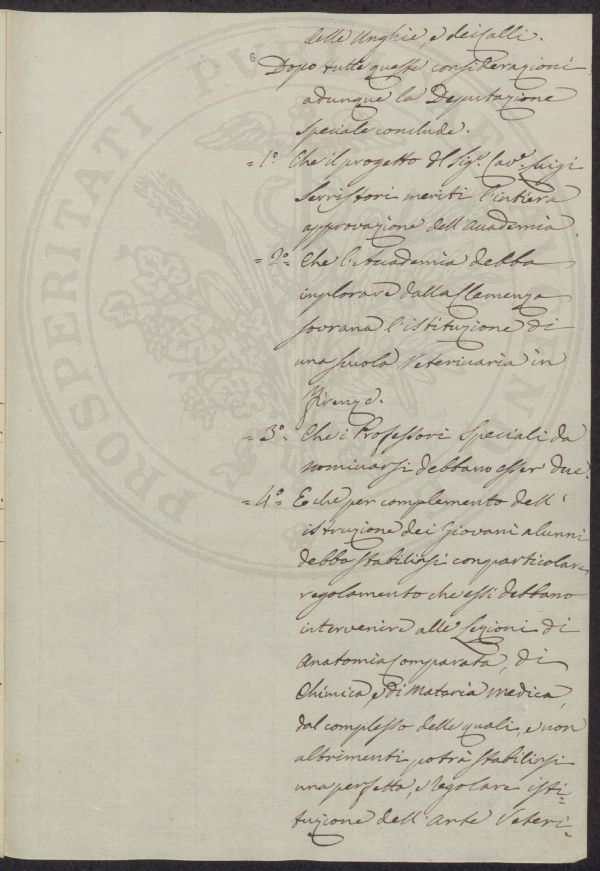 delle Unghie, e dei Calli.
6
Dopo tutte queste considerazioni
adunque la Deputazione
speciale conclude.
=1°= Che il progetto del Sig.r Cav.e Luigi
Serristori meriti l'intiera
approvazione dell'Accademia
=2°= Che l'Accademia debba
implorare dalla Clemenza
sovrana l'istituzione di
una scuola Veterinaria in
Firenze.
=3°= Che i Professori Speciali da
nominarsi debbano esser due.
=4°= E che per complemento dell'
istruzione dei Giovani alunni
debba stabilirsi con particolare
regolamento che essi debbano
intervenire alle Lezioni di
Anatomia Comparata, di
Chimica, e di Materia medica,
dal complesso delle quali, e non
altrimenti potrà stabilirsi
una perfetta, e regolare isti=
tuzione dell'Arte Veteri=
PROSPERITATI PUBLICAE